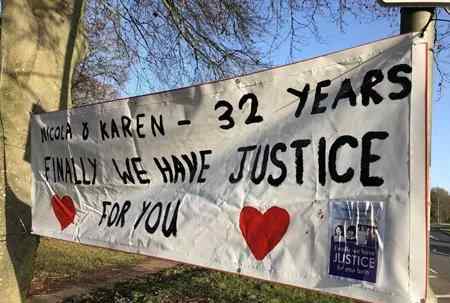 NICOLA & KAREN - 32 YEARS
FINALLY WE HAVE JUSTICE
FOR YOU
JUSTICE